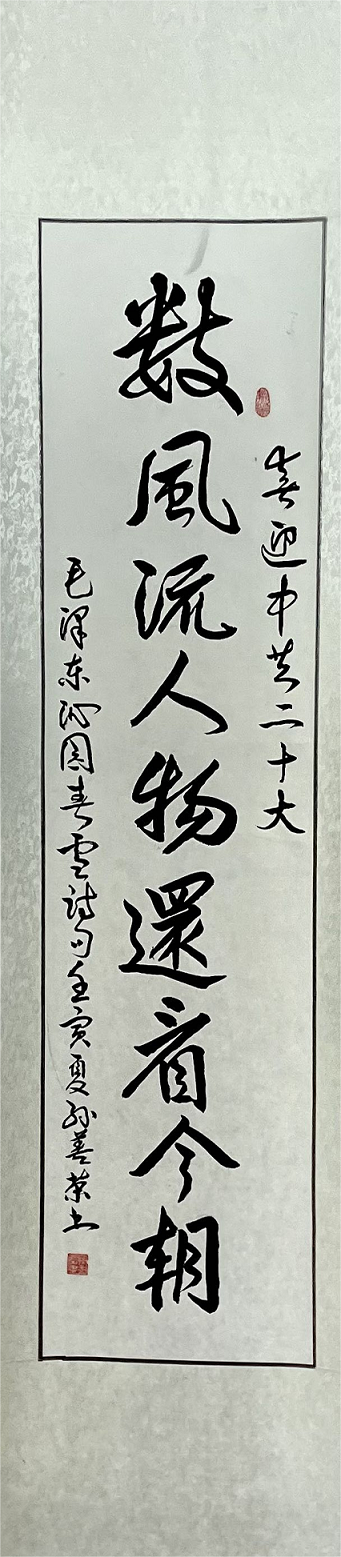 喜迎中共二十大
数風流人物還看今朝
毛泽东沁园春雪詩句壬寅夏孙善荣书